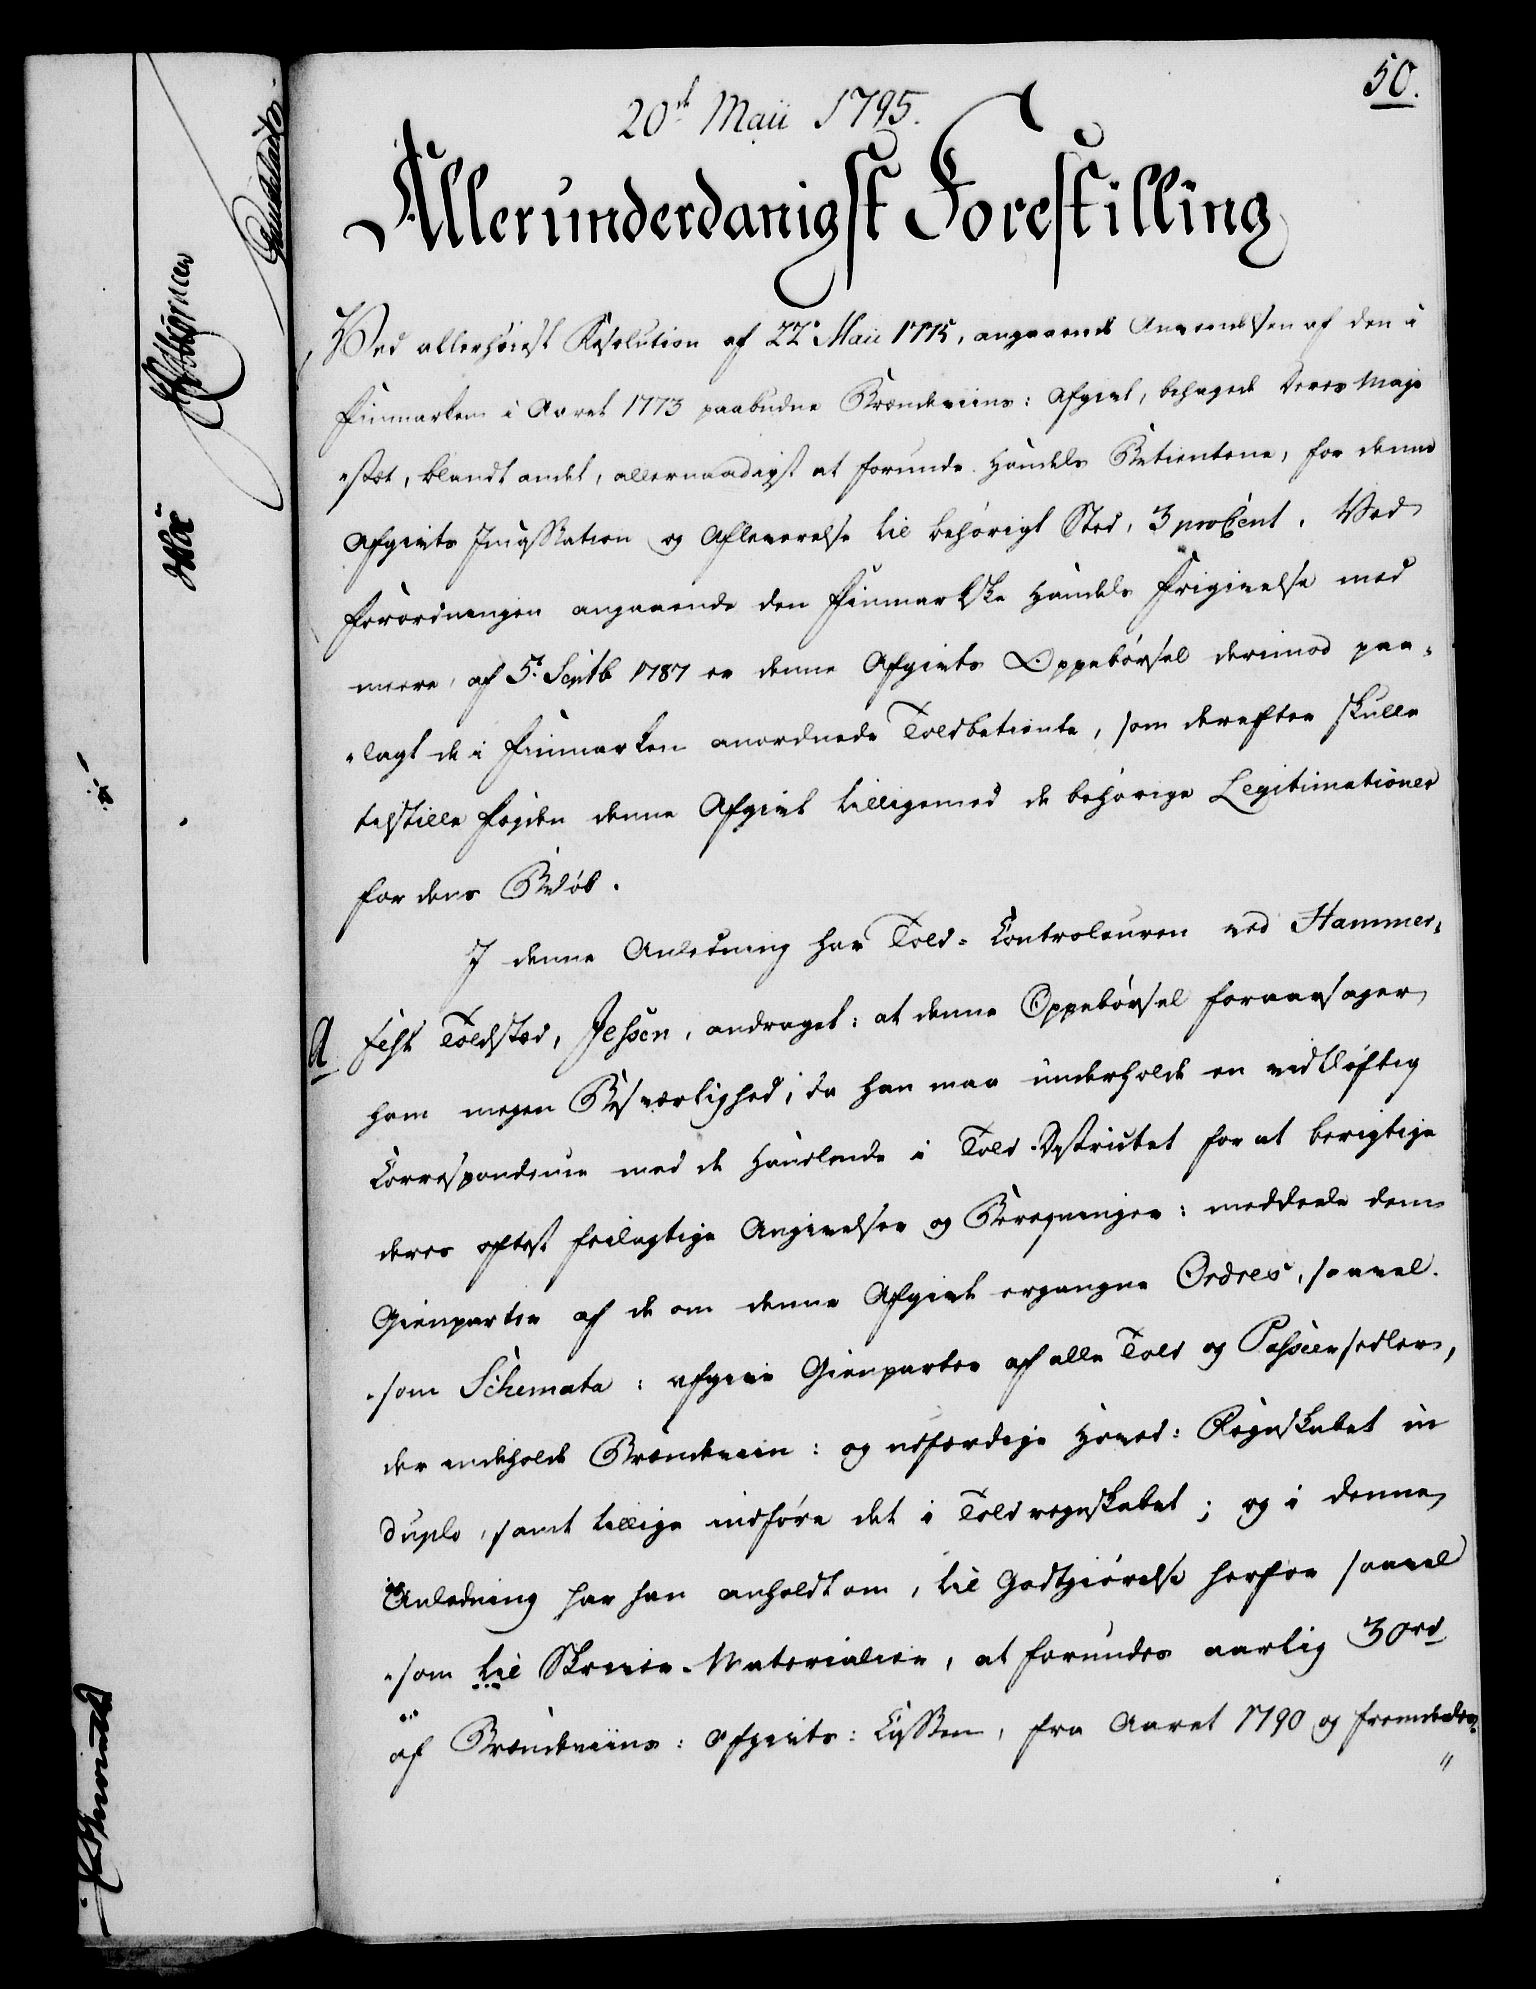 50.
20de Maii 1795.
Allerunderdanigst Forestilling
Ved allerhøiest Resolution af 22de Maii 1775, angaaende Anvendelsen af den i
Finmarken i Aaret 1773 paabudne Brændeviins: Afgivt, behagede Deres Maje
stæt, blandt andet, allernaadigst at forunde Handels Betientene, for denne
Afgivts Incassation og Aflevering til behørigt Sted, 3 proCent. Ved
Forordningen angaaende den Finmarkske Handels Frigivelse med
meere, af 5te Septb 1787 er denne Afgivts Oppebørsel derimod paa-
lagt de i Finmarken anordnede Toldbetiente, som derefter skulle
tilstille Fogden denne Afgivt tilligemed de behørige Legitimationer
for dens Beløb.
I denne Anledning har Told-Controleuren ved Hammer-
A
fest Toldsted, Jessen, andraget: at denne Oppebørsel foraarsager
ham megen Besværlighed, da han maa underholde en vidtløftig
Correspondence med de Handlende i Told-Districtet for at berigtige
deres oftest feilagtige Angivelser og Beregninger: meddeele dem
Gienparter af de om denne Afgivt ergangne Ordres, saavel
som Schemata: afgive Gienparter af alle Told og Passeersedler,
der indeholde Brændeviin: og udfærdige Hoved: Regnskabet in
duplo, samt tillige indføre det i Toldregnskabet; og i denne
Anledning har han anholdt om, til Godtgiørelse herfor saavel
som til Skriver-Materialier, at forundes aarlig 30 rd
af Brændeviins: Afgivts: Cassen, fra Aaret 1790 og fremdeeles,